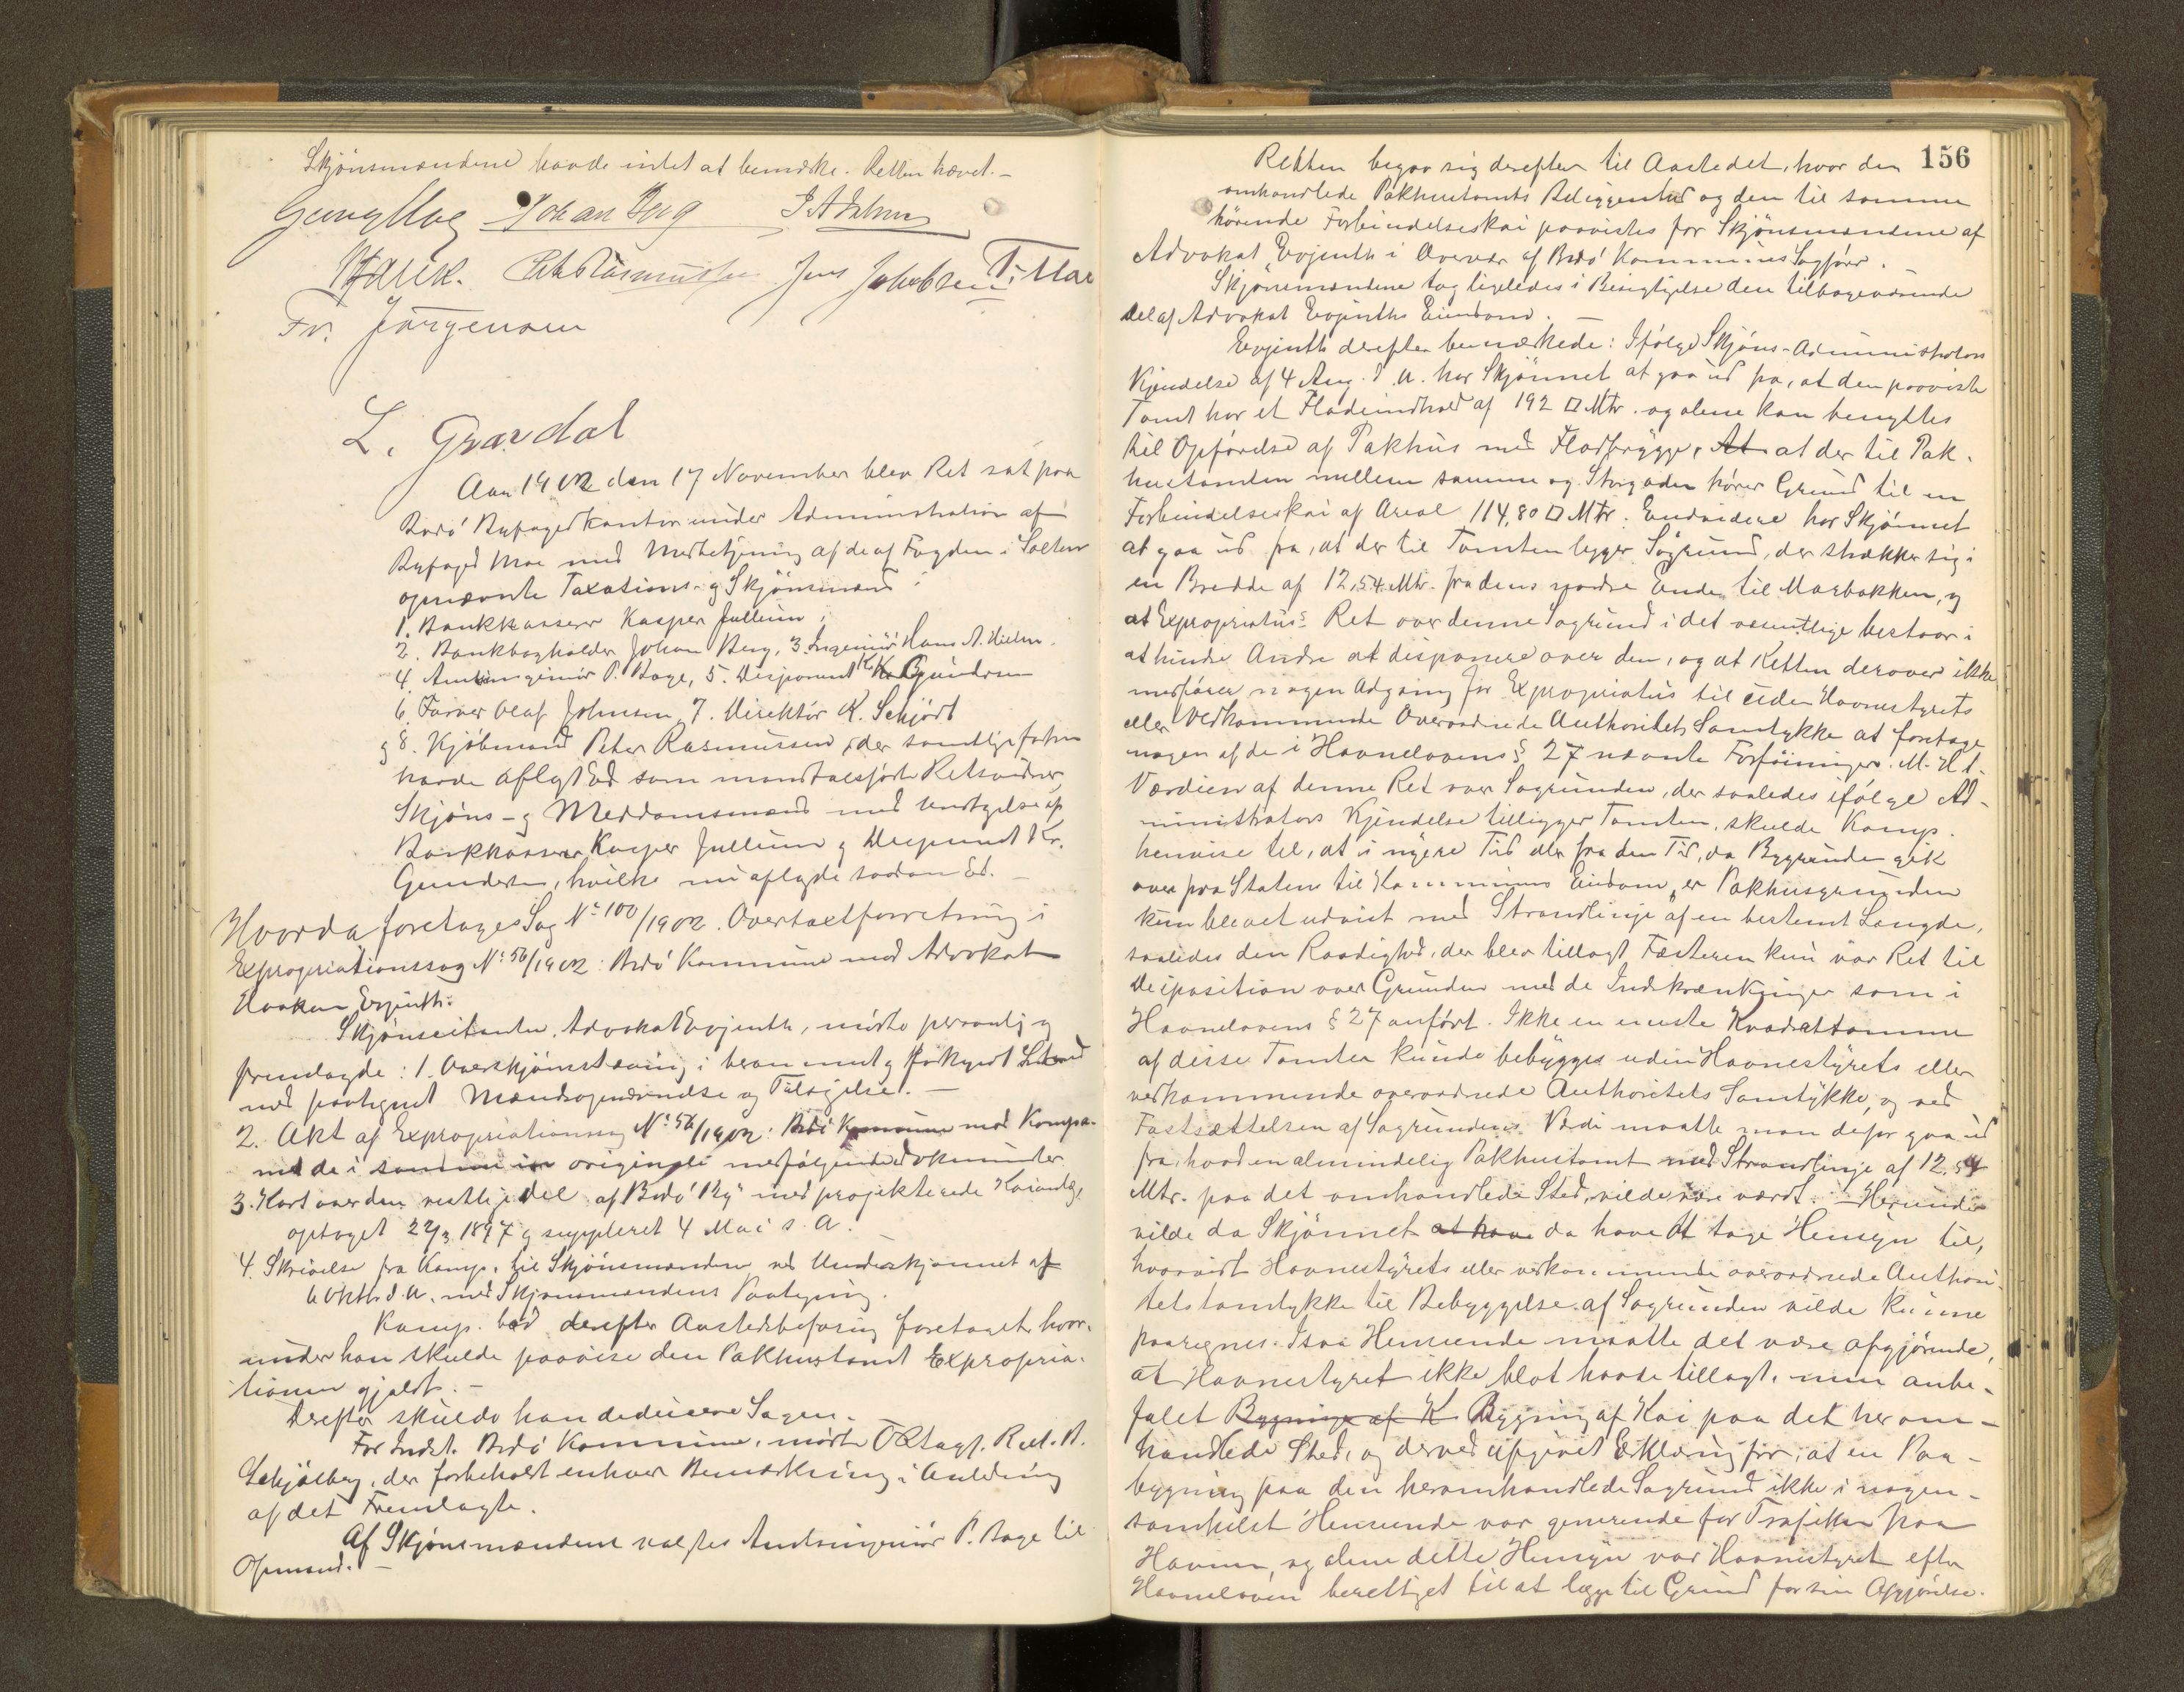 Skjønsmændene havde intet at bemærke. Retten hævet.-
Johan Berg
Hauk. Peter Rasmussen Jens Jakobsen
Fr. Jørgensen
L. Grardal
Aar 1902 den 17 November blev Ret sat paa
Bodø Byfogedkontor under Administration af
Byfoged Moe med Medbetjening af de af Fogden i Salten
opnævnte Taxations- og Skjønsmænd:
1. Bankkasserer Kasper Jullum,
2. Bankbogholder Johan Berg, 3. Ingeniør Hans A.
4. Amtsingeniør P. Bage, 5. Disponent Kr. Gundersen
6. Farver Olaf Johnsen, 7. Direktør K. Schjødt
og 8. Kjøbmand Peter Rasmussen, der samtlige før
havde aflagt Ed som mandtalsførte Retsvidner,
Skjøns- og Meddomsmænd med Undtagelse af
Bankkasserer Kasper Jullum og Disponent Kr.
Gundersen, hvilke nu aflagde saadan Ed. -
Hvorda foretoges Sag No 100/1902. Overtaxtforretning i
Expropriationssag No 56/1902: Bodø Kommune mod Advokat
Haakon Evjenth:
Skjønscitanten, Advokat Evjenth, mødte personlig og
fremlagde: 1. Overskjønsstævning i beram met og forkyndt Stand
med paategnet Mændsopnævnelse og Tilsigelse. -
2. Akt af Expropriationssag No 56/1902: Bodø Kommune mod Komp.
med de i samme in originali medfølgende Dokumenter
3. Kart over den vestlige Del af Bodø By med projekterede Kaianlæg,
optaget 22/3 1897 og suppleret 4 Mai s. A.
4. Skrivelse fra Komp. til Skjønsmændene ved Underskjønnet af
6 Oktbr. d. A. med Skjønsmændenes Paategning.
Komp. bad derefter Aastedsbefaring foretaget, hvor-
under han skulde paavise den Pakhustomt Expropria-
tionen gjaldt. -
Derefter skulde han deducere Sagen.
For Indst. Bodø Kommune, mødte ORsagf.
Schjølberg, der forbeholdt enhver Bemærkning i Anledning
af det Fremlagte.
Af Skjønsmændene valgtes Amtsingeniør P. Bage til
Opmand. -
156
Retten begav sig derefter til Aastedet, hvor den
omhandlede Pakhustomts Beliggenhed og den til samme
hørende Forbindelseskai paavistes for Skjønsmændene af
Advokat Evjenth i Overvær af Bodø Kommunes Sagfører.
Skjønsmændene tog ligeledes i Besigtigelse den tilbageværende
Del af Advokat Evjenths Eiendom. -
Evjenth derefter bemærkede: Ifølge Skjøns-Administrators
Kjendelse af 4 Aug. d. A. har Skjønnet at gaa ud fra, at den paaviste
Tomt har et Fladeindhold af 192 □ Mtr. og alene kan benyttes
til Opførelse af Pakhus med Fladbrygge, At at der til Pak-
hustomten mellem samme og Storgaden hører Grund til en
Forbindelseskai af Areal 114,80 □ Mtr. Endvidere har Skjønnet
at gaa ud fra, at der til Tomten ligger Søgrund, der strækker sig i
en Bredde af 12,54 Mtr. fra dens nordre Ende til Marbakken, og
at Expropriatus's Ret over denne Søgrund i det væsentlige bestaar i
at hindre Andre at disponere over den, og at Retten derover ikke
medfører nogen Adgang for Expropriatus til uden Havnestyrets
eller Vedkommende Overordnede Authoritets Samtykke at foretage
nogen af de i Havnelovens § 27 nævnte Forføininger. M. H. t.
Værdien af denne Ret over Søgrunden, der saaledes ifølge Ad-
ministrators Kjendelse tilligger Tomten, skulde Komp.
henvise til, at i nyere Tid eller fra den Tid, da Bygrunden gik
over fra Statens til Kommunens Eiendom, er Pakhusgrunden
kun blevet udvist med Strandlinje af en bestemt Længde,
saaledes den Raadighed, der blev tillagt Fæsteren kun var Ret til
Disposition over Grunden med de Indskrænkninger som i
Havnelovens § 27 anført. Ikke en eneste Kvadrattomme
af disse Tomter kunde bebygges uden Havnestyrets eller
vedkommende overordnede Authoritets Samtykke, og ved
Fastsættelsen af Søgrundens Værdi maatte man derfor gaa ud
fra, hvad en almindelig Pakhustomt med Strandlinje af 12,54
Mtr. paa det omhandlede Sted, vilde være værdt. - Herunder
vilde da Skjønnet at have da have at tage Hensyn til,
hvorvidt Havnestyrets eller vedkommende overordnede Authori-
tets Samtykke til Bebyggelse af Søgrunden vilde kunne
paaregnes. I saa Henseende maatte det være afgjørende,
at Havnestyret ikke blot havde tilladt, men anbe-
falet Bygninge af K Bygning af Kai paa det her om-
handlede Sted, og derved afgivet Erklæring for, at en Paa-
bygning paa den heromhandlede Søgrund ikke i nogen-
somhelst Henseende var generende for Trafiken paa
Havnen, og alene dette Hensyn var Havnestyret efter
Havneloven berettiget til at lægge til Grund for sin Afgjørelse.